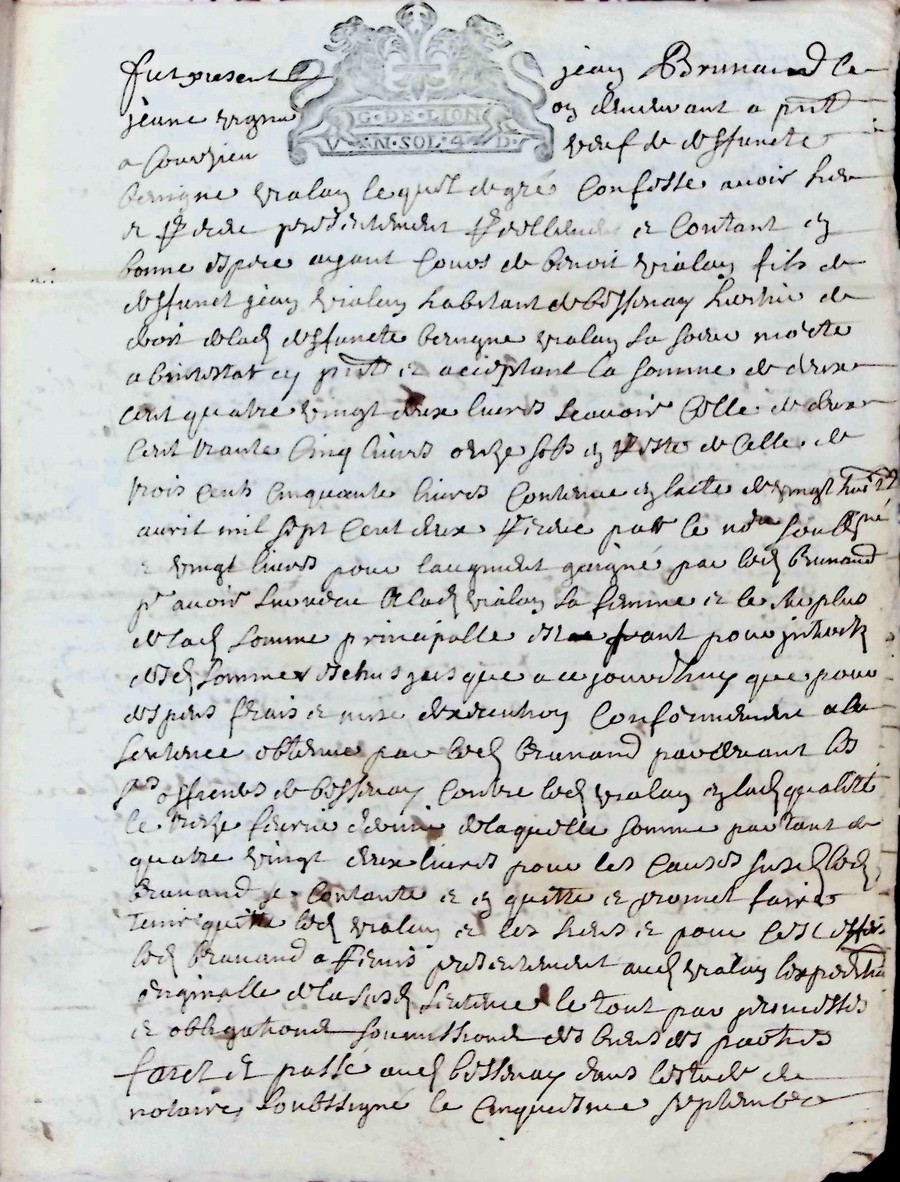 fut present jean Brunand le
G · DE · LION
jeune vigneron demeurant a pnt
V · N · SOL · 4 · D ·
a Courzieu veuf de deffuncte
benigne vialan lequel de gré confesse avoir heu
et receu presentement et contant en
bonne espece ayant cours de benoit vialan fils de
deffunct jean vialan habitant de bessenay heritie de
droit de lad deffuncte benigne vialan sa soeur morte
abintestat cy pnt et acceptant la somme de deux
cent quatre vingt deux livres scavoir celle de deux
cent trante cinq livres onze sols en reste de celle de
trois cents cinquante livres contenue en lacte de vingt huit
avril mil sept cent deux receu par le nore soubsné
et vingt livres pour laugment gaigné par led Brunand
pr avoir survecu a lad vialan sa femme et le surplus
de lad somme principalle tant pour jnterets
desd sommes deheus jusques a ce jourdhuy que pour
despens frais et mise dexecution conformement a la
sentence obtenue par led brunand pardevant les
srs officiers de bessenay contre led vialan en lad qualité
le treize febvrier dernier de laquelle somme partant de
quatre vingt deux livres pour les causes susd led
Brunand se contante et en quitte et promet faire
tenir quitte led vialan et les siens et pour cest effet
led brunand a remis presentement aud vialan lexpedition
originalle de la susd sentence le tout par promesses
et obligations soumissions des biens des parties
faict et passé aud bessenay dans lestude du
notaire soubssigné le cinquiesme septembre